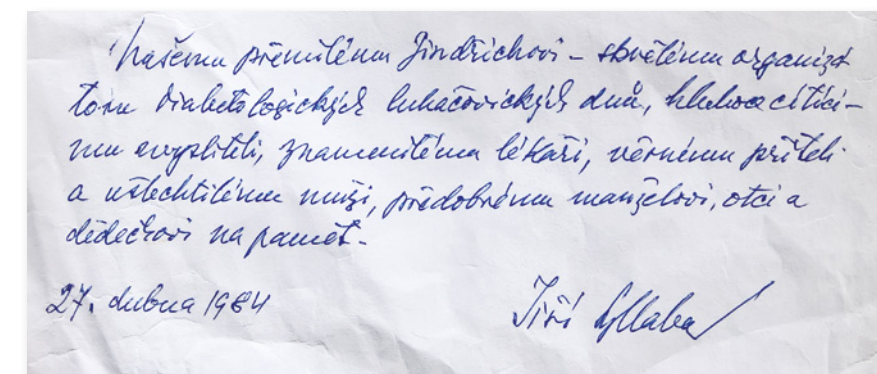 Našemu přemilému Jindřichovi – skvělému organizá
toru diabetologických luhačovických dnů, hluboce cítící–
mu mysliteli, znamenitému lékaři, věrnému příteli
a ušlechtilému muži, předobrému manželovi, otci a
dědečkovi na paměť–
27. dubna 1984 Jiří Syllaba